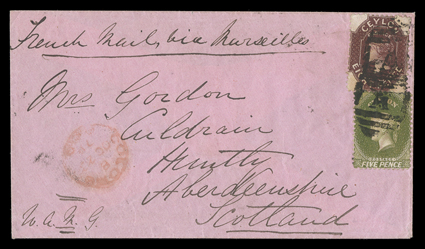 French Mail, via Marseilles
CEYLON
Mrs Gordon
Culdrain
Huntly
Aberdeenshire
Scotland
FIVE PENCE